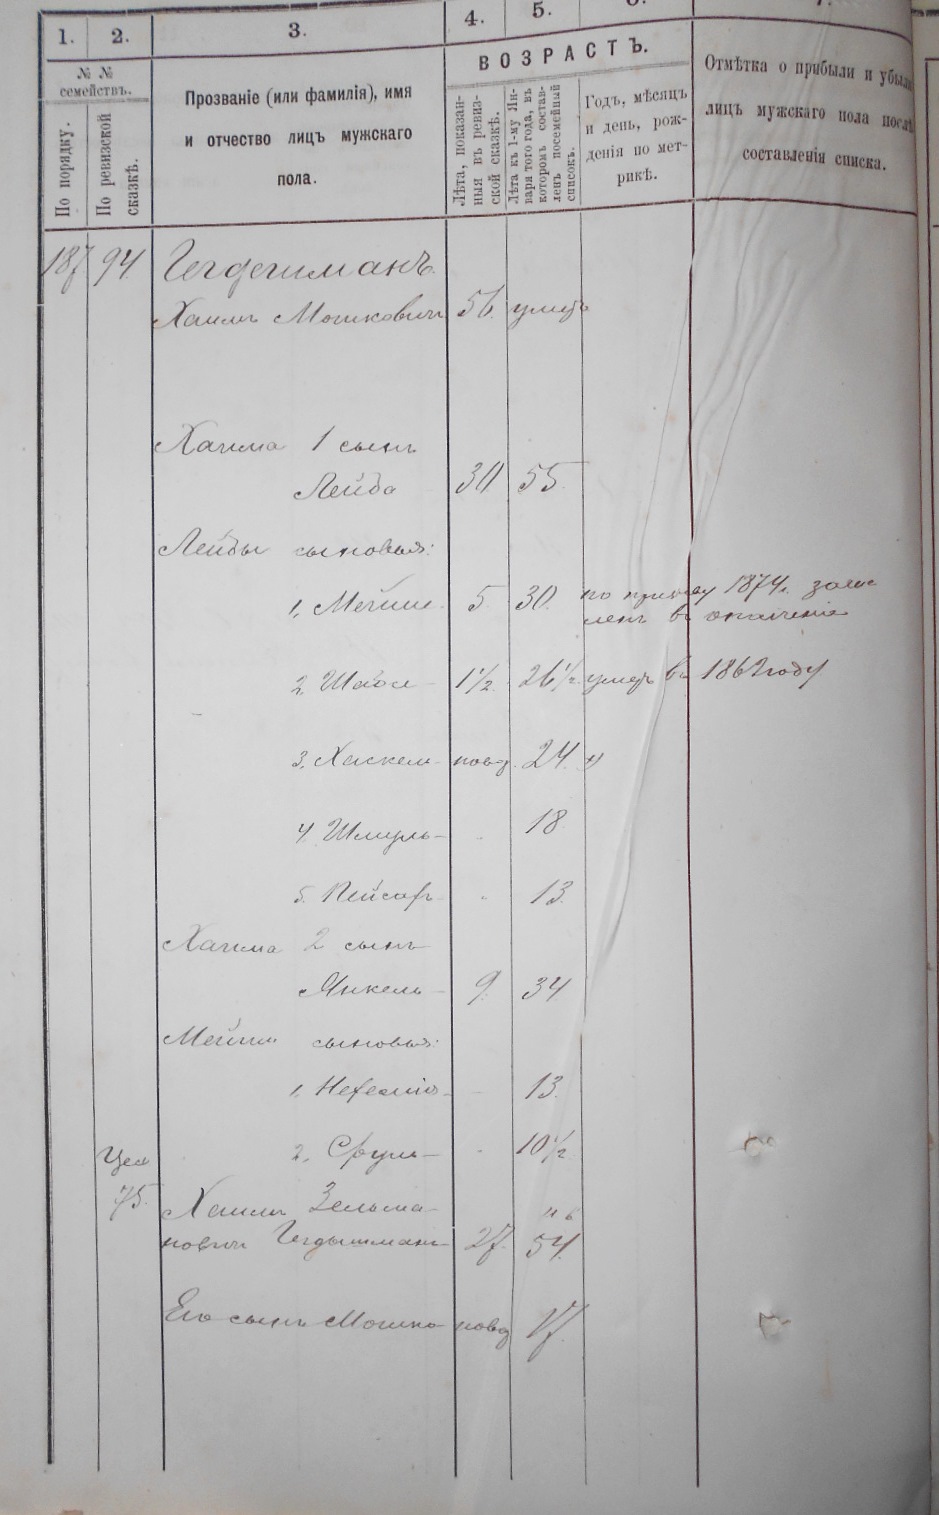 1. 2. 3. 4. 5.
ВОЗРАСТЪ.
№ №
семействъ.
По порядку.
По ревизской
сказкѣ.
Прозваніе (или фамилія), имя
и отчество лицъ мужскаго
пола.
Лѣта, показан-
ныя въ ревиз-
ской сказкѣ.
Лѣта къ 1-му Ян-
варя того года, въ
которомъ состав-
ленъ посемейный
списокъ.
Годъ, мѣсяцъ
и день, рож-
денія по мет-
рикѣ.
Отмѣтка о прибыли и убыли
лицъ мужскаго пола послѣ
составленія списка.
187 94
Хаимъ Мошковичъ 56. умеръ
Хаима 1 сынъ
Лейба 30 55.
Лейбы сыновья:
1. Мейше 5. 30. по призыву 1874г. зачис
ленъ въ ополченіе
2. 1½. 26½. умеръ въ 1862 году
3. Хаскель новор. 24.
4. Шмуль - 18
5. Пейсахъ - 13.
Хаима 2 сынъ
Янкель 9. 34
сыновья:
1. Нехемія - 13.
2. Сруль - 10½.
75. Хаимъ Зельма-
новичъ 27. 54.
Его сынъ Мошко новор 17.